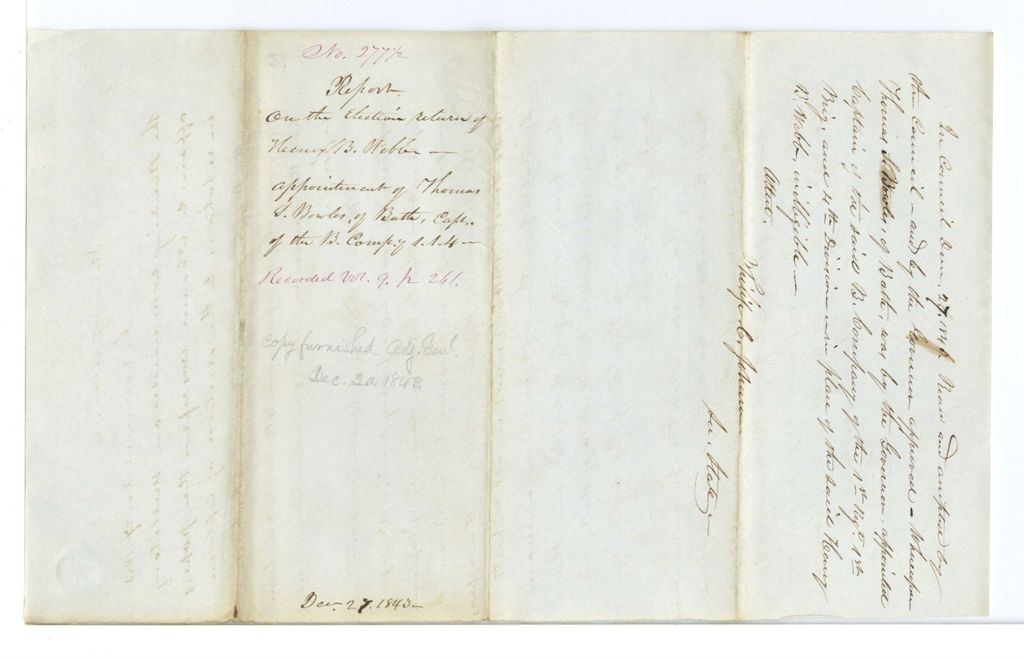 No. 277 1/2
Report
On the Election return of
Henry B. Webb —
appointment of Thomas
S. Bowles, of Bath, Capt.
of the B. Compy 1. 1. 4 —
Recorded Vol. 9. p 261.
Copy furnished Adj. Genl.
Dec. 30. 1843.
Dec. 27. 1843 —
In Council Decr. 27. 184 Read and accepted by
the Council — and by the Governor approved — Whereupon
Thomas S. Bowles, of Bath, was, by the Governor, appointed
Captain of the said B. Company of the 1st Regt. 1st
Brig. and 4th Division — in place of the said Henry
B. Webb, ineligible —
Attest.
Philip C. Johnson
Sec. State —